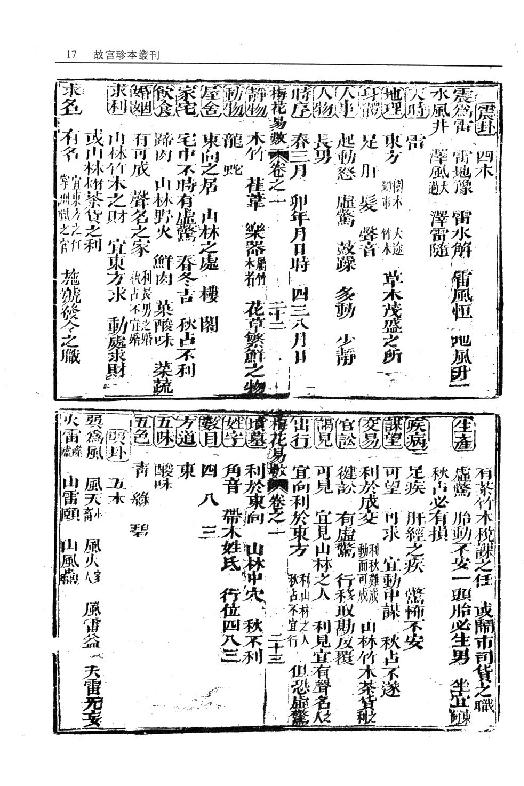 17 故宮珍本叢刊
震卦 四木
震爲雷 雷地豫 雷水解 雷風恒 地風升
水風井 澤風大過 澤雷隨
天時 雷
地理 東方 樹木 鬧市 大途 竹木 草木茂盛之所
身體 足 肝 髮 聲音
人事 起動 怒 虛驚 鼓躁 多動 少靜
人物 長男
時序 春三月 卯年月日時 四三八月日
梅花易數 卷之一 二十二
靜物 木竹 萑葦 樂器 屬竹木者 花草繁鮮之物
動物 龍 蛇
屋舍 東向之居 山林之處 樓閣
家宅 宅中不時有虛驚 春冬吉 秋占不利
飲食 蹄肉 山林野火 鮮肉 菓酸味 菜蔬
婚姻 有可成 聲名之家 利長男之婚 秋占不宜婚
求利 山林竹木之財 宜東方求 動處求財
或山林竹木茶貨之利
求名 有名 宜東方之任 施號發令之職
有茶竹木稅課之任 或鬧市司貨之職
生產 虛驚 胎動不安 一頭胎必生男 坐宜向東
秋占必有損
疾病 足疾 肝經之疾 驚怖不安
謀望 可望 可求 宜動中謀 秋占不遂
交易 利於成交 秋利難成 動而可成 山林竹木茶貨利
官訟 健訟 有虛驚 行移取勘反覆
謁見 可見 宜見山林之人 利見宜有聲名人
出行 宜向利於東方 利山林之人 秋占不宜行 但恐虛驚
梅花易數 卷之一 二十三
墳墓 利於東向 山林中穴 秋不利
姓字 角音 帶木姓氏 行位四八三
數目 四 八 三
方道 東
五味 酸味
五色 青 綠 碧
巽卦 五木
巽爲風 風天小畜 風火家人 風雷益 天雷无妄
火雷噬嗑 山雷頤 山風蠱